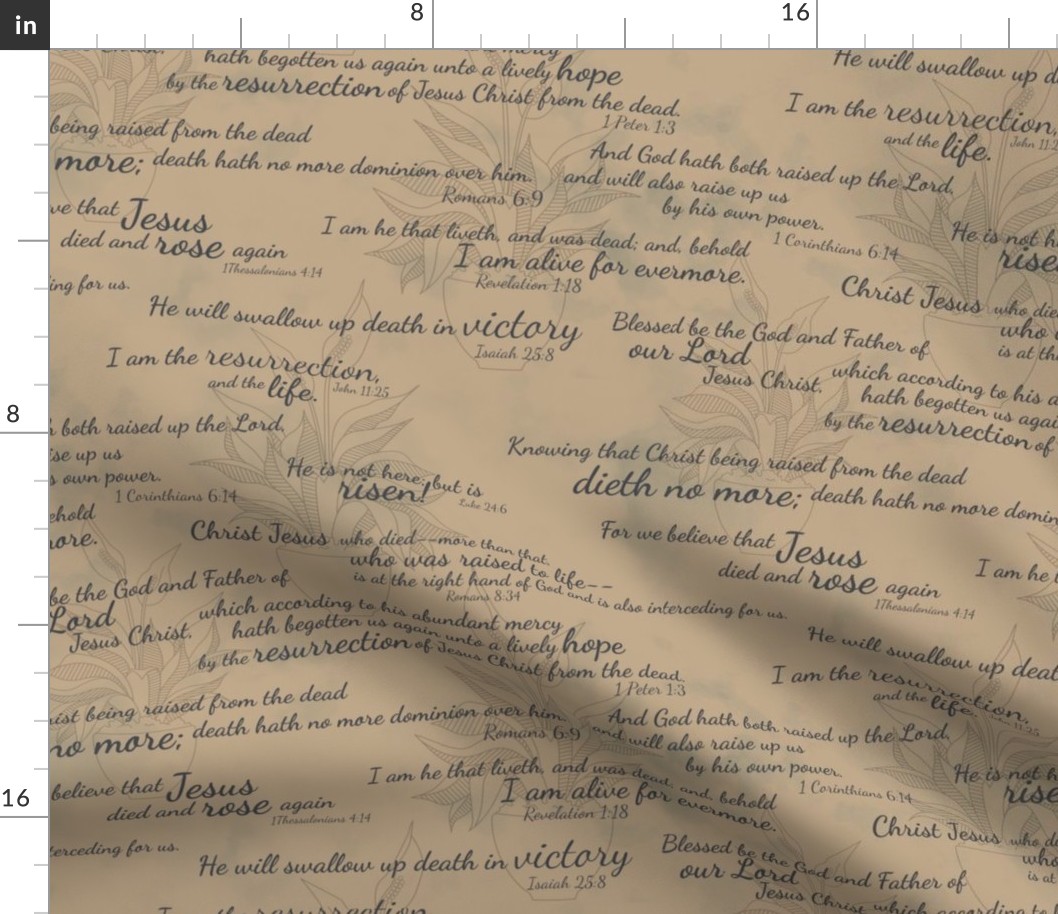 in
8
16
hath begotten us again unto a lively hope
by the resurrection of Jesus Christ from the dead.
1 Peter 1:3
He will swallow up d
I am the resurrection,
and the life.
John 11:2
being raised from the dead
more; death hath no more dominion over him.
Romans 6:9
And God hath both raised up the Lord,
and will also raise up us
by his own power.
1 Corinthians 6:14
ve that Jesus
died and rose again
1Thessalonians 4:14
I am he that liveth, and was dead; and, behold
I am alive for evermore.
Revelation 1:18
He is not h
rise
ing for us.
Christ Jesus who died
who
is at th
He will swallow up death in victory
Isaiah 25:8
Blessed be the God and Father of
our Lord
Jesus Christ,
which according to his a
hath begotten us agai
by the resurrection of
I am the resurrection,
and the life.
John 11:25
8
both raised up the Lord,
ise up us
s own power.
1 Corinthians 6:14
Knowing that Christ being raised from the dead
dieth no more; death hath no more domin
He is not here; but is
risen!
Luke 24:6
ehold
ore.
Christ Jesus who died--more than that,
who was raised to life--
is at the right hand of God and is also interceding for us.
Romans 8:34
For we believe that Jesus
died and rose again
1Thessalonians 4:14
I am he
be the God and Father of
Lord
Jesus Christ,
which according to his abundant mercy
hath begotten us again unto a lively hope
by the resurrection of Jesus Christ from the dead.
1 Peter 1:3
He will swallow up deat
I am the resurrection,
and the life.
ist being raised from the dead
no more; death hath no more dominion over him.
Romans 6:9
And God hath both raised up the Lord,
and will also raise up us
by his own power.
1 Corinthians 6:14
believe that Jesus
died and rose again
1Thessalonians 4:14
I am he that liveth, and was dead; and, behold
I am alive for evermore.
Revelation 1:18
He is not h
rise
16
terceding for us.
Christ Jesus who di
who
is at
He will swallow up death in victory
Isaiah 25:8
Blessed be the God and Father of
our Lord
Jesus Christ, which according to
I am the resurrection,